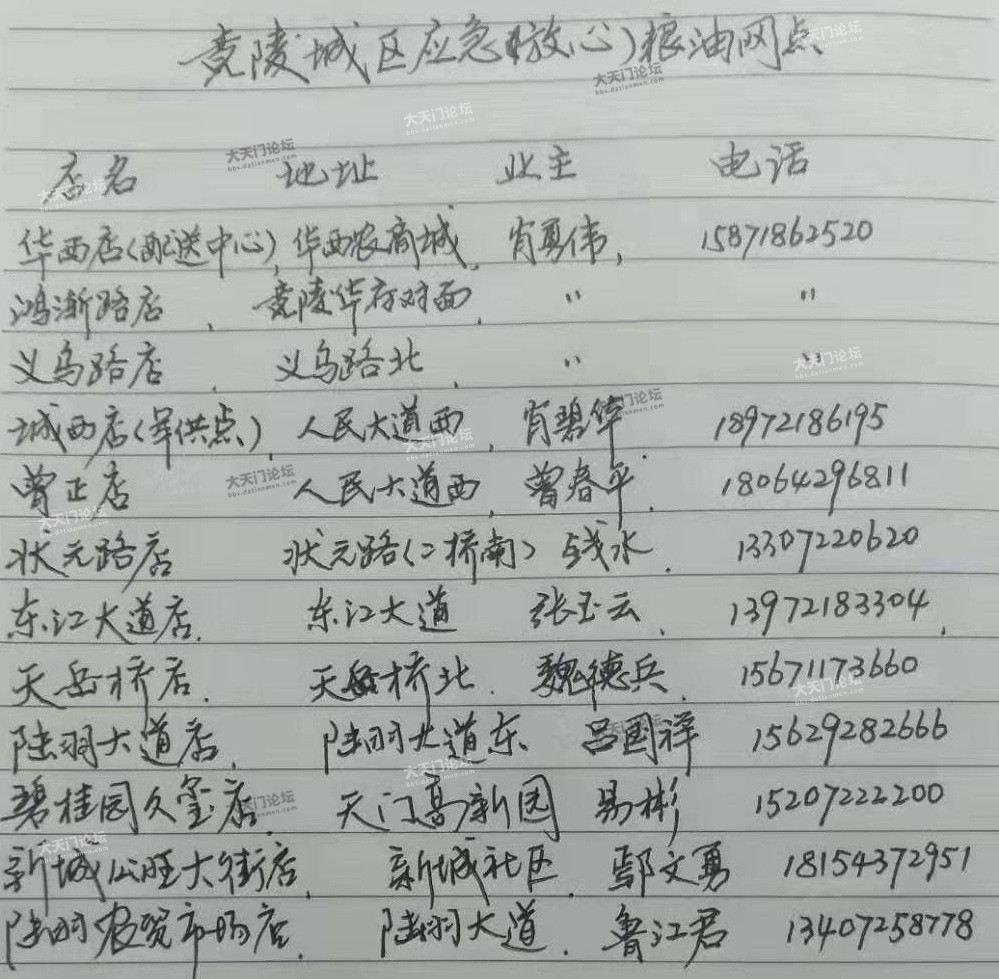 竟陵城区应急(放心)粮油网点
店名 地址 业主 电话
华西店(配送中心), 华西农商城, 肖勇伟, 15871862520
鸿渐路店, 竟陵华府对面, 〃 〃
义乌路店, 义乌路北, 〃 〃
城西店(军供点), 人民大道西, 肖碧华, 18972186195
曾正店 人民大道西, 曾春平, 18064296811
状元路店 状元路(二桥南) 钱水, 13307220620
东江大道店, 东江大道 张玉云, 13972183304,
天岳桥店, 天岳桥北, 魏德兵, 15671173660
陆羽大道店, 陆羽大道东 吕国祥 15629282666
碧桂园久玺店, 天门高新园 易彬 15207222200
新城公旺大街店, 新城社区, 鄢文勇 18154372951
陆羽农贸市场店, 陆羽大道, 鲁江君 13407258778
大天门论坛
bbs.datianmen.com